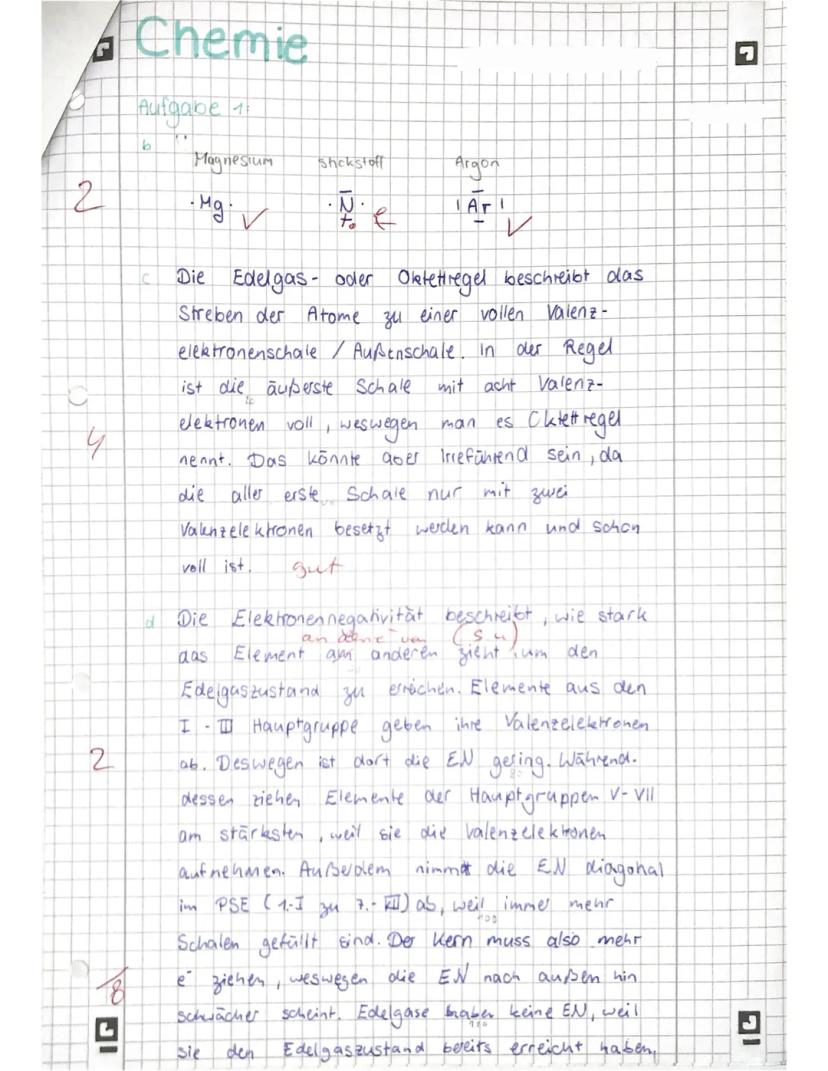 Chemie
Aufgabe 1:
b
Magnesium Stickstoff Argon
2
·Mg· N· |Ar|
c Die Edelgas- oder Oktettregel beschreibt das
Streben der Atome zu einer vollen Valenz-
elektronenschale / Außenschale. In der Regel
ist die äußerste Schale mit acht Valenz-
elektronen voll, weswegen man es Oktettregel
4
nennt. Das könnte aber irreführend sein, da
die aller erste Schale nur mit zwei
Valenzelektronen besetzt werden kann und schon
voll ist. gut
d Die Elektronennegativität beschreibt, wie stark
das Element am anderen zieht, um den
Edelgaszustand zu erreichen. Elemente aus den
I - III Hauptgruppe geben ihre Valenzelektronen
2
ab. Deswegen ist dort die EN gering. Während-
dessen ziehen Elemente der Hauptgruppen V-VII
am stärksten, weil sie die Valenzelektronen
aufnehmen. Außerdem nimmt die EN diagonal
im PSE (1.-I zu 7.-VII) ab, weil immer mehr
Schalen gefüllt sind. Der Kern muss also mehr
8
e⁻ ziehen, weswegen die EN nach außen hin
schwächer scheint. Edelgase haben keine EN, weil
sie den Edelgaszustand bereits erreicht haben.